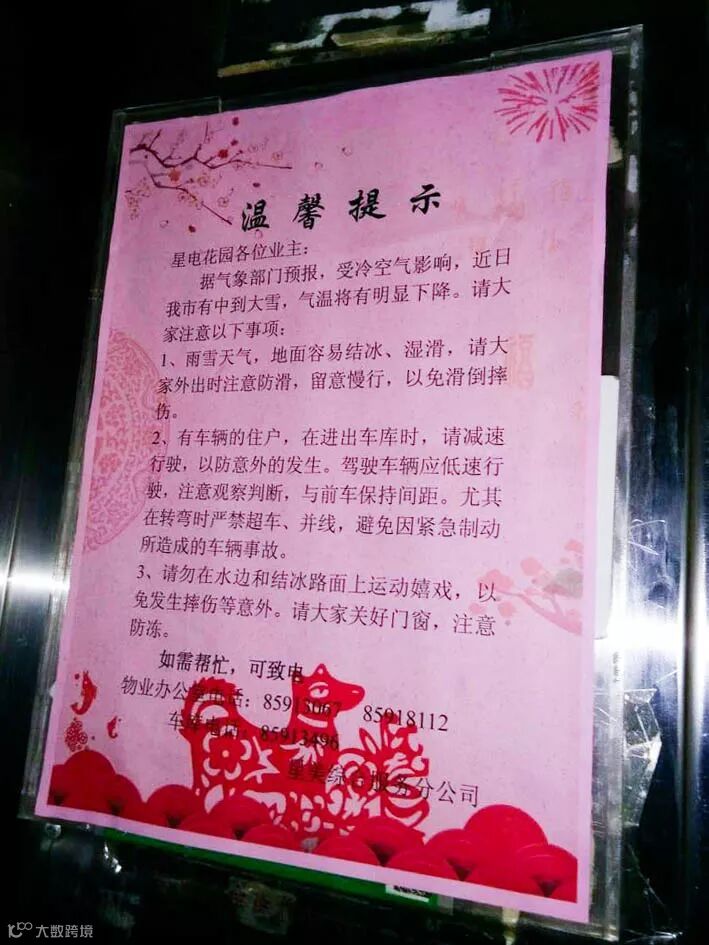 温馨提示
星电花园各位业主：
据气象部门预报，受冷空气影响，近日
我市有中到大雪，气温将有明显下降。请大
家注意以下事项：
1、雨雪天气，地面容易结冰、湿滑，请大
家外出时注意防滑，留意慢行，以免滑倒摔
伤。
2、有车辆的住户，在进出车库时，请减速
行驶，以防意外的发生。驾驶车辆应低速行
驶，注意观察判断，与前车保持间距。尤其
在转弯时严禁超车、并线，避免因紧急制动
所造成的车辆事故。
3、请勿在水边和结冰路面上运动嬉戏，以
免发生摔伤等意外。请大家关好门窗，注意
防冻。
如需帮忙，可致电
物业办公室电话：85913067 85918112
车库电话：85913496
星美综合服务分公司
大数跨境